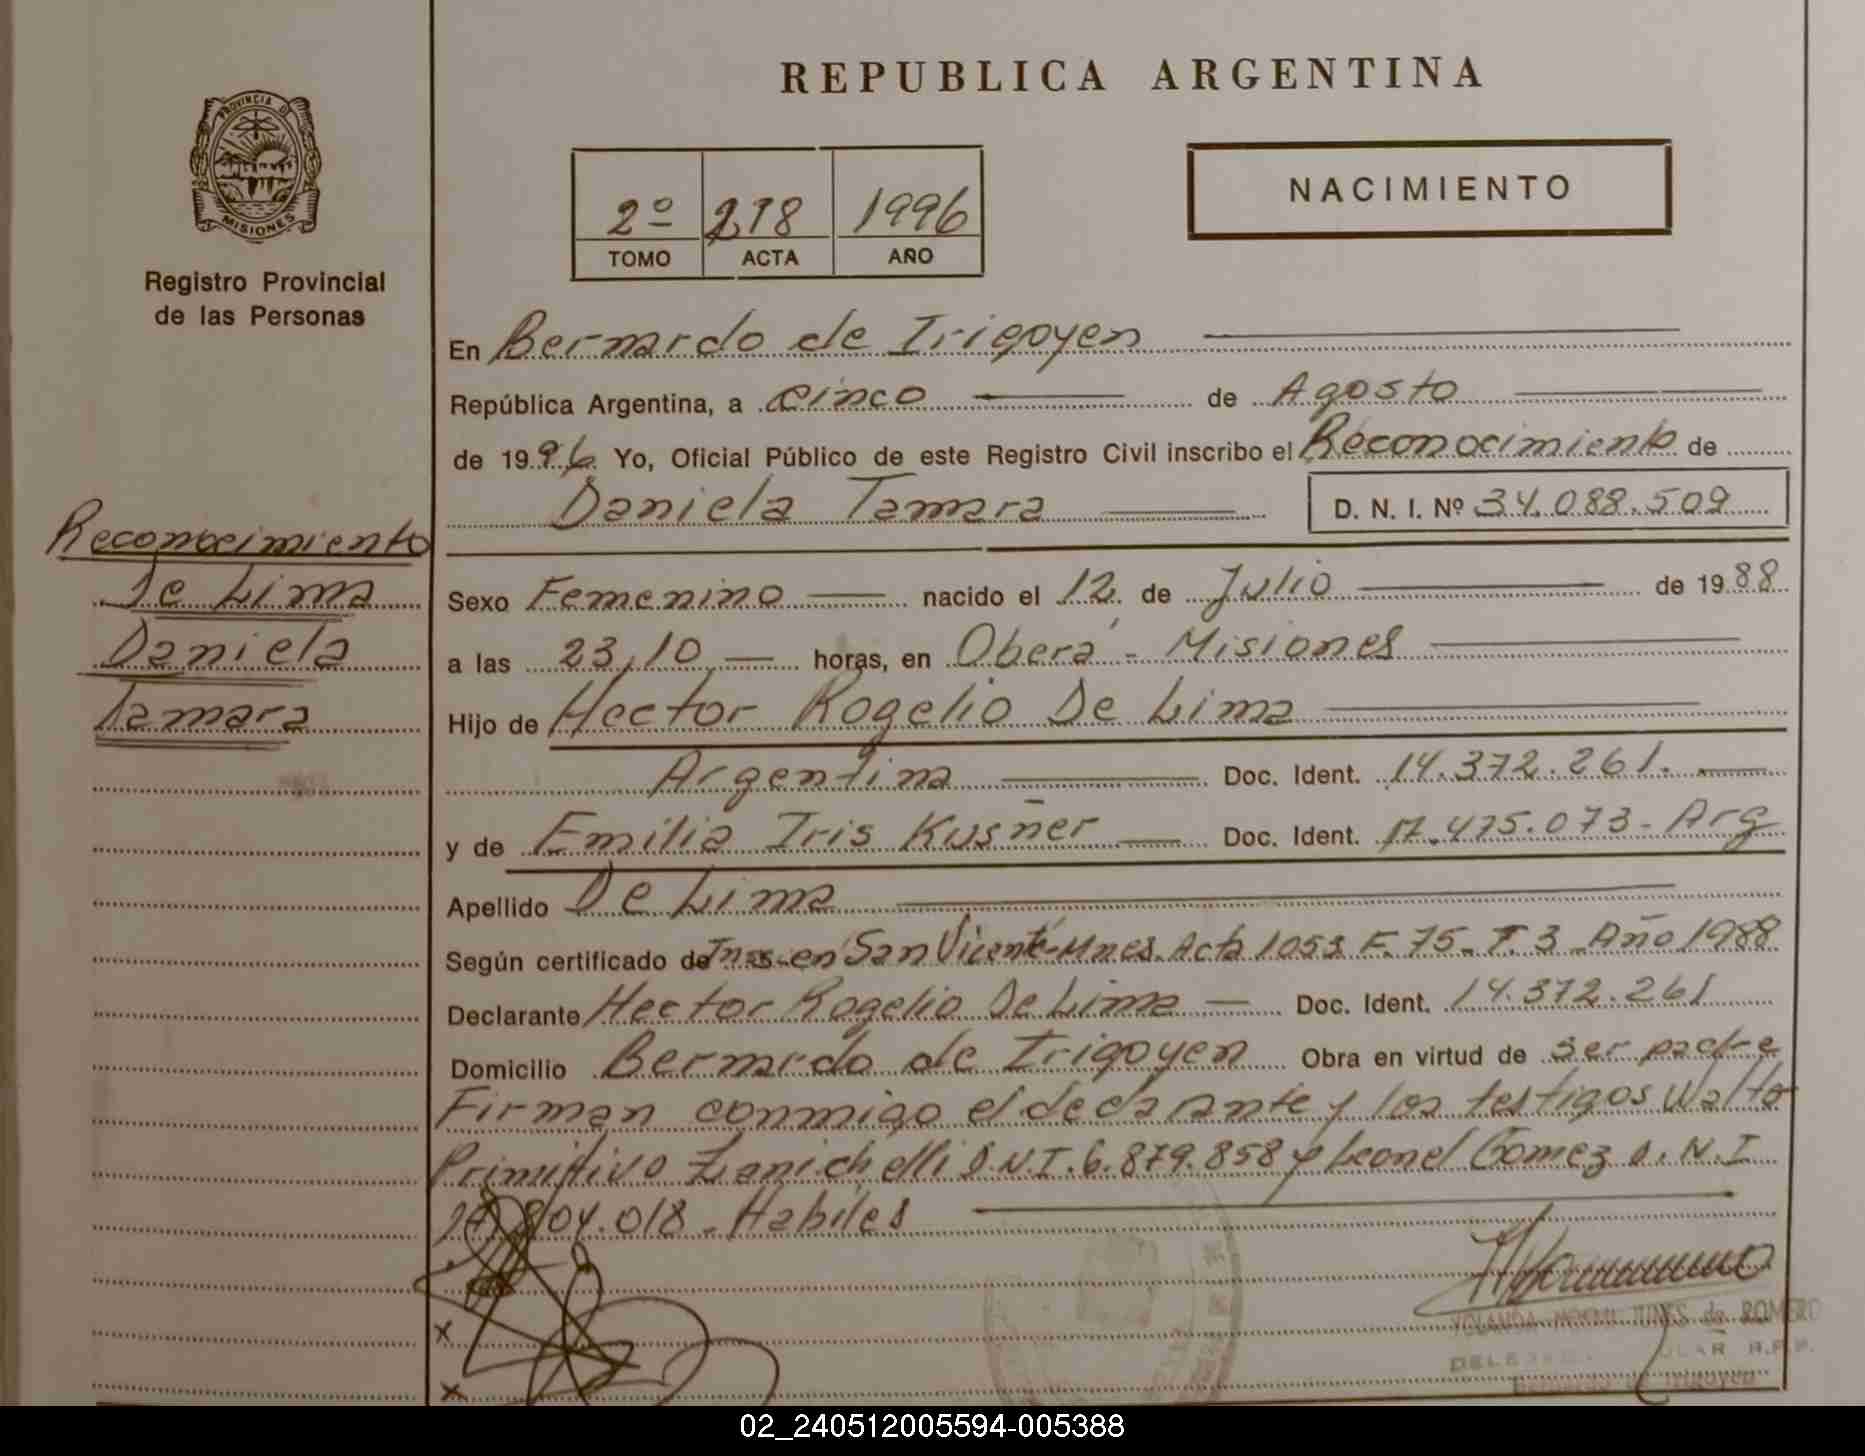 PROVINCIA D
MISIONES
Registro Provincial
de las Personas
REPUBLICA ARGENTINA
2º 278 1996
TOMO ACTA AÑO
NACIMIENTO
En Bernardo de Irigoyen
República Argentina, a cinco de Agosto
de 1996 Yo, Oficial Público de este Registro Civil inscribo el Reconocimiento de
Daniela Tamara D. N. I. Nº 34.088.509
Reconocimiento
De Lima
Daniela
Tamara
Sexo Femenino nacido el 12 de Julio de 1988
a las 23,10 horas, en Oberá - Misiones
Hijo de Hector Rogelio De Lima
Argentina Doc. Ident. 14.372.261.
y de Emilia Iris Kusñer Doc. Ident. 17.475.073 - Arg
Apellido De Lima
Según certificado de Ins. en San Vicente - Mnes. Acta 1053 F. 75 - T. 3 - Año 1988
Declarante Hector Rogelio De Lima Doc. Ident. 14.372.261
Domicilio Bernardo de Irigoyen Obra en virtud de ser padre
Firman conmigo el declarante y los testigos
Primitivo Zanichelli D.N.I. 6.879.858 y Leonel Gomez D.N.I
804.018 - Habiles
x
x
YOLANDA JUNES de ROMERO
Bernardo de Irigoyen
02_240512005594-005388